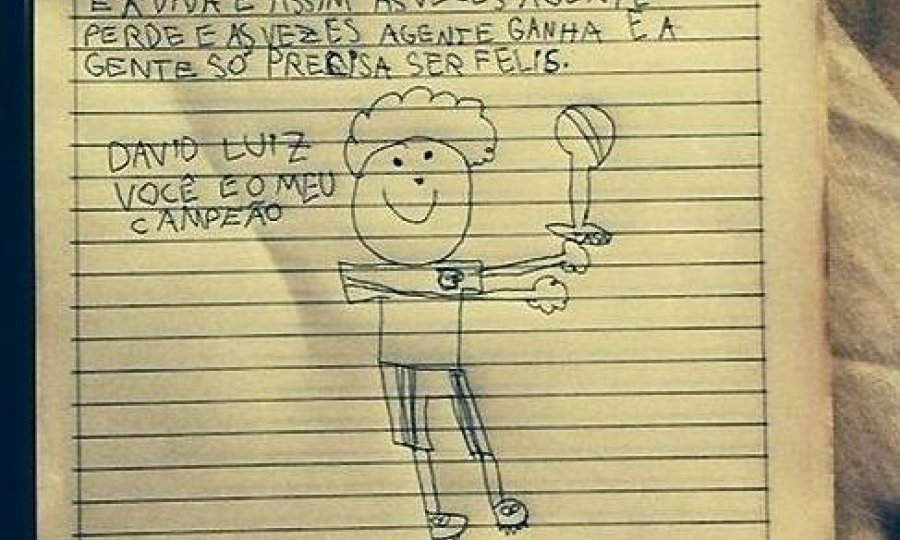 E A VIDA E ASSIM ASVEZES AGENTE
PERDE E ASVEZES AGENTE GANHA E A
GENTE SÓ PRECISA SER FELIS.
DAVID LUIZ
VOCÊ E O MEU
CAMPEÃO